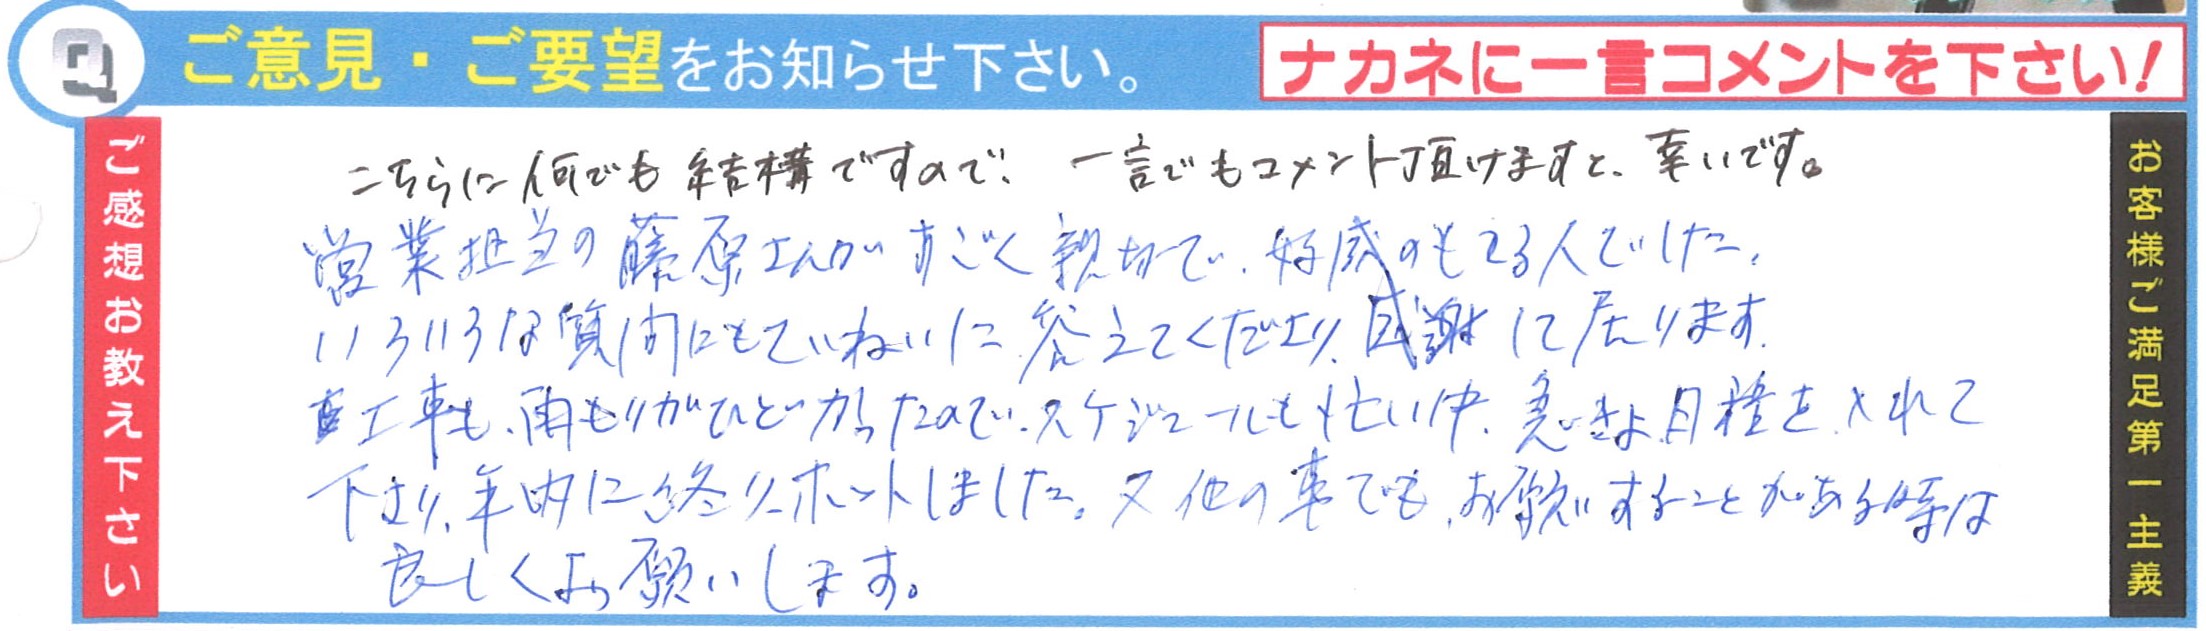 Q
ご意見・ご要望をお知らせ下さい。
ナカネに一言コメントを下さい!
ご感想お教え下さい
こちらに何でも結構ですので、一言でもコメント頂けますと、幸いです。
営業担当の藤原さんがすごく親切で、好感のもてる人でした。
いろいろな質問にもていねいに答えてくださり、感謝して居ります。
工事も、雨もりがひどかったので、スケジュールも忙しい中、急きよ日程を入れて
下さり、年内に終りホットしました。又他の事でも、お願いすることがある時は
良しくお願いします。
お客様ご満足第一主義